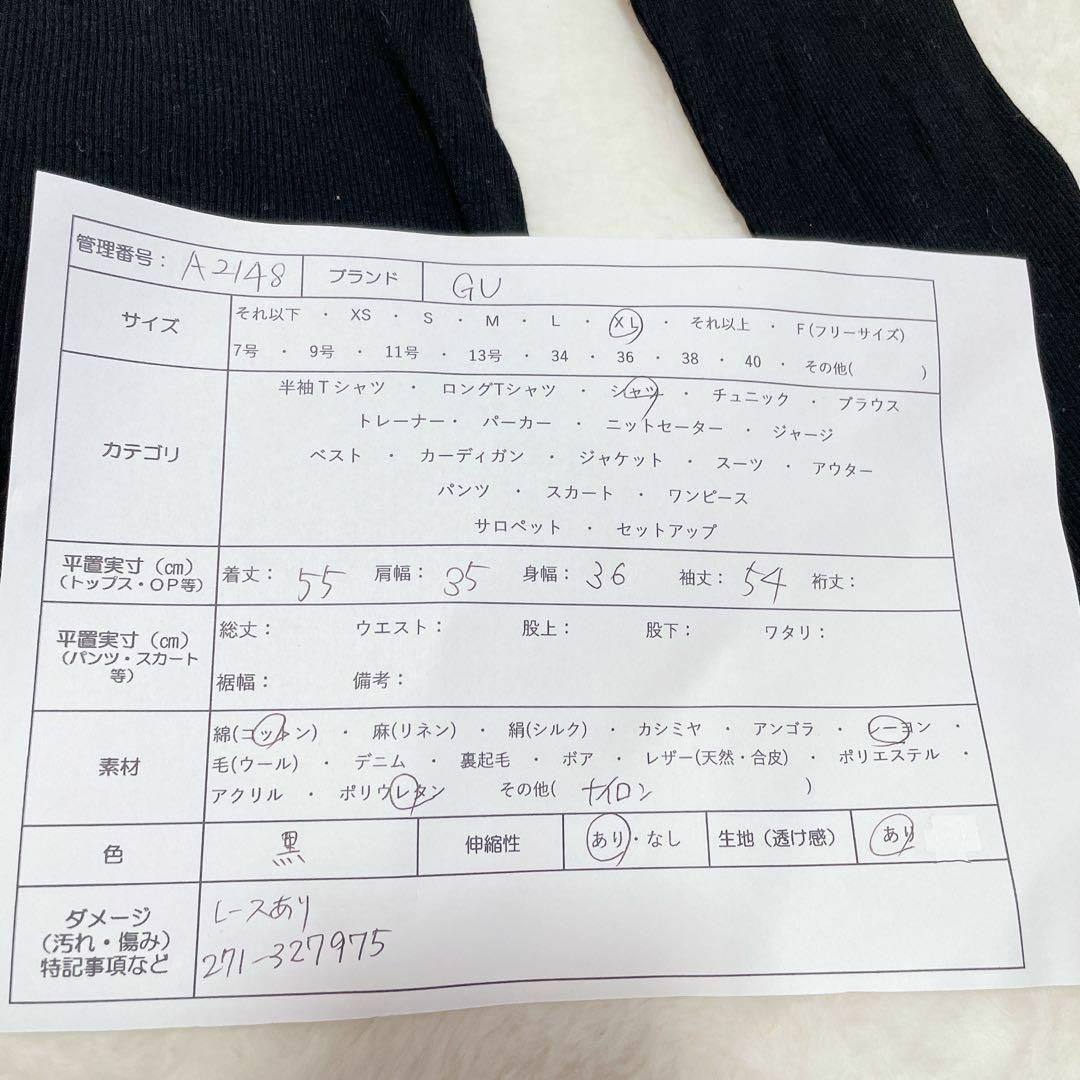 管理番号： A2148 ブランド GU
サイズ
それ以下 ・ XS ・ S ・ M ・ L ・ XL ・ それ以上 ・ F(フリーサイズ)
7号 ・ 9号 ・ 11号 ・ 13号 ・ 34 ・ 36 ・ 38 ・ 40 ・ その他( )
カテゴリ
半袖Tシャツ ・ ロングTシャツ ・ シャツ ・ チュニック ・ ブラウス
トレーナー・ パーカー ・ ニットセーター ・ ジャージ
ベスト ・ カーディガン ・ ジャケット ・ スーツ ・ アウター
パンツ ・ スカート ・ ワンピース
サロペット ・ セットアップ
平置実寸（cm）
（トップス・OP等）
着丈： 55 肩幅： 35 身幅： 36 袖丈： 54 裄丈：
平置実寸（cm）
（パンツ・スカート
等）
総丈： ウエスト： 股上： 股下： ワタリ：
裾幅： 備考：
素材
綿(コットン) ・ 麻(リネン) ・ 絹(シルク) ・ カシミヤ ・ アンゴラ ・ レーヨン ・
毛(ウール) ・ デニム ・ 裏起毛 ・ ボア ・ レザー(天然・合皮) ・ ポリエステル ・
アクリル ・ ポリウレタン その他( ナイロン )
色 黒 伸縮性 あり・なし 生地（透け感） あり
ダメージ
（汚れ・傷み）
特記事項など
レースあり
271-327975